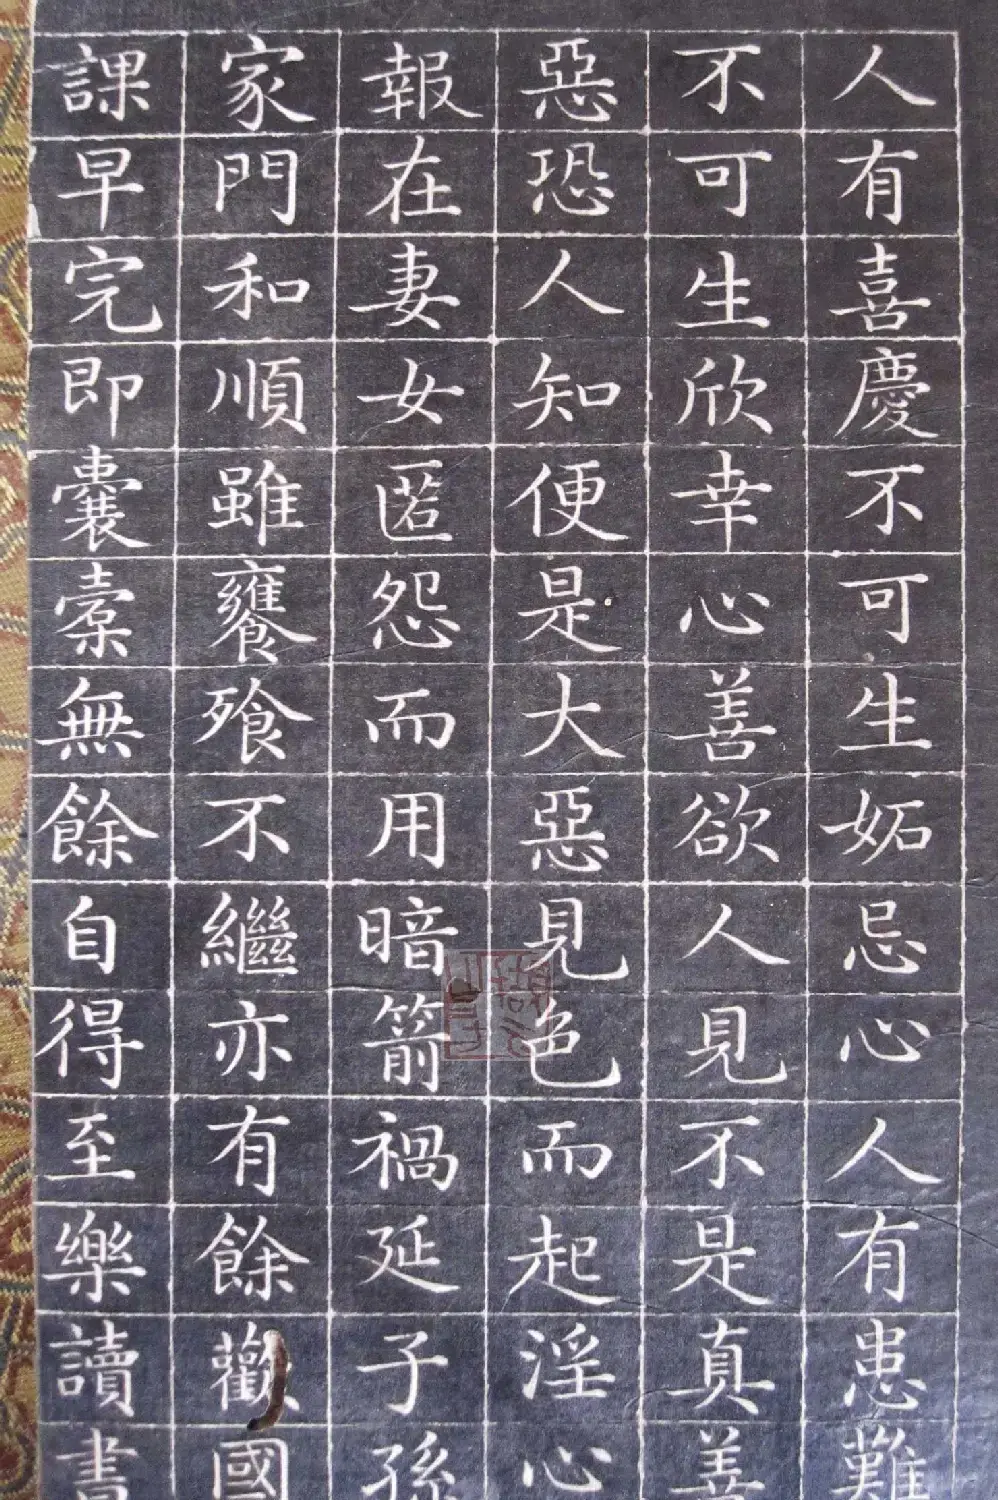 人有喜慶不可生妬忌心人有患難
不可生欣幸心善欲人見不是真善
惡恐人知便是大惡見色而起淫心
報在妻女匿怨而用暗箭禍延子孫
家門和順雖饔飧不繼亦有餘歡國
課早完即囊槖無餘自得至樂讀書